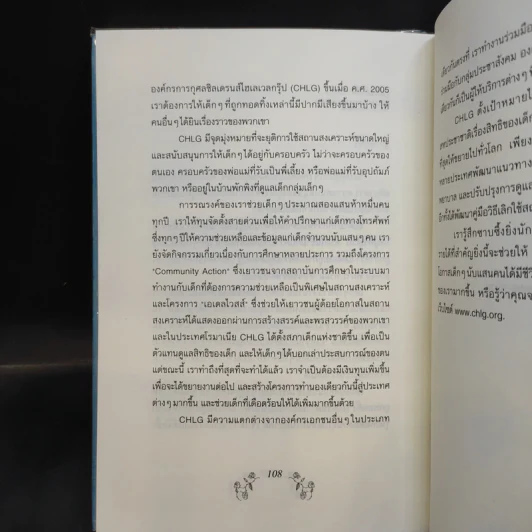 องค์กรการกุศลชิลเดรนส์ไฮเลเวลกรุ๊ป (CHLG) ขึ้นเมื่อ ค.ศ. 2005
เราต้องการให้เด็กๆ ที่ถูกทอดทิ้งเหล่านี้มีปากมีเสียงขึ้นมาบ้าง ให้
คนอื่นๆ ได้ยินเรื่องราวของพวกเขา
CHLG มีจุดมุ่งหมายที่จะยุติการใช้สถานสงเคราะห์ขนาดใหญ่
และสนับสนุนการให้เด็กๆ ได้อยู่กับครอบครัว ไม่ว่าจะครอบครัวของ
ตนเอง ครอบครัวของพ่อแม่ที่รับเป็นพี่เลี้ยง หรือพ่อแม่ที่รับอุปถัมภ์
พวกเขา หรืออยู่ในบ้านพักพิงที่ดูแลเด็กกลุ่มเล็กๆ
การรณรงค์ของเราช่วยเด็กๆ ประมาณสองแสนห้าหมื่นคน
ทุกปี เราให้ทุนจัดตั้งสายด่วนเพื่อให้คำปรึกษาแก่เด็กทางโทรศัพท์
ซึ่งทุกๆ ปีให้ความช่วยเหลือและข้อมูลแก่เด็กจำนวนนับแสนๆ คน เรา
ยังจัดกิจกรรมเกี่ยวเนื่องกับการศึกษาหลายประการ รวมถึงโครงการ
'Community Action' ซึ่งเยาวชนจากสถาบันการศึกษาในระบบมา
ทำงานกับเด็กที่ต้องการความช่วยเหลือเป็นพิเศษในสถานสงเคราะห์
และโครงการ 'เอเดลไวสส์' ซึ่งช่วยให้เยาวชนผู้ด้อยโอกาสในสถาน
สงเคราะห์ได้แสดงออกผ่านการสร้างสรรค์และพรสวรรค์ของพวกเขา
และในประเทศโรมาเนีย CHLG ได้ตั้งสภาเด็กแห่งชาติขึ้น เพื่อเป็น
ตัวแทนดูแลสิทธิของเด็ก และให้เด็กๆ ได้บอกเล่าประสบการณ์ของตน
แต่ขณะนี้ เราทำถึงที่สุดที่จะทำได้แล้ว เราจำเป็นต้องมีเงินทุนเพิ่มขึ้น
เพื่อจะได้ขยายงานต่อไป และสร้างโครงการทำนองเดียวกันนี้สู่ประเทศ
ต่างๆ มากขึ้น และช่วยเด็กที่เดือดร้อนให้ได้เพิ่มมากขึ้นด้วย
CHLG มีความแตกต่างจากองค์กรเอกชนอื่นๆ ในประเภท
108
เดียวกันตรงที่ เราทำงานร่วมมือ
ร่วมมือกับกลุ่มประชาสังคม อง
เดียวกันที่เป็นผู้ให้บริการต่างๆ
CHLG ตั้งเป้าหมายไ
ประชาชาติเรื่องสิทธิของเด็ก
ที่สุดให้ขยายไปทั่วโลก เพียง
หลายประเทศพัฒนาแนวทาง
พยาบาล และปรับปรุงการดูแ
อีกทั้งได้พัฒนาคู่มือวิธีเลิกใช้ส
เรารู้สึกซาบซึ้งยิ่งนัก
รายได้ที่สำคัญยิ่งนี้จะช่วยให้
โอกาสเด็กๆ นับแสนคนได้มีชีวิ
ของเรามากขึ้น หรือรู้ว่าคุณจ
เว็บไซต์ www.chlg.org.